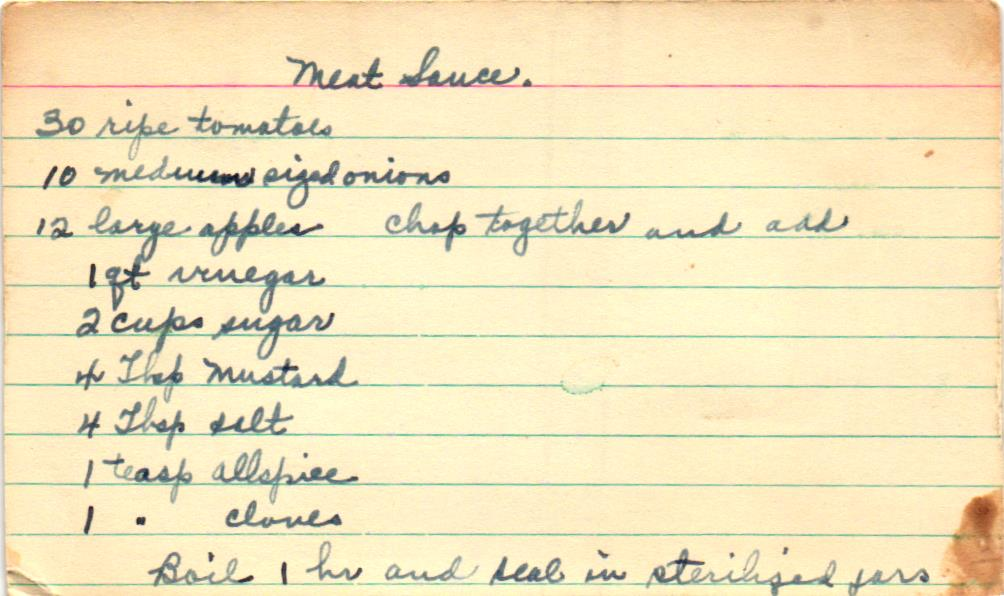 Meat Sauce.
30 ripe tomatoes
10 medium sized onions
12 large apples chop together and add
1 qt vinegar
2 cups sugar
4 Tbsp Mustard
4 Tbsp salt
1 teasp allspice
1 " cloves
Boil 1 hr and seal in sterilized jars